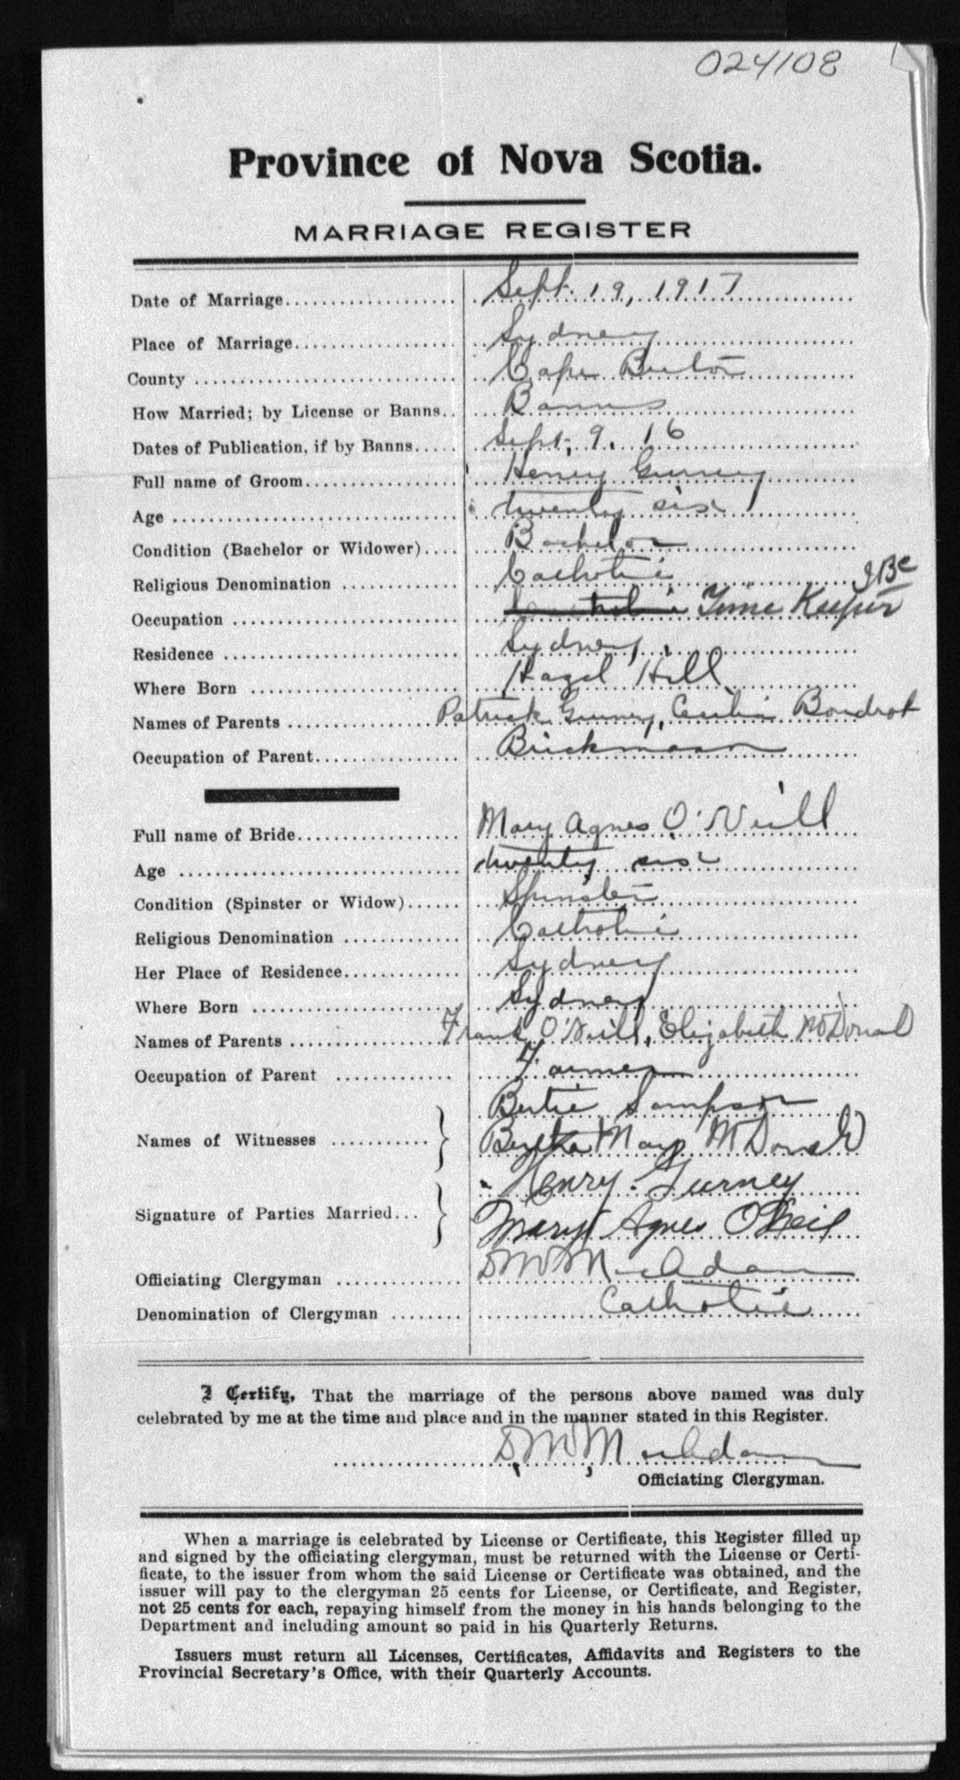 024108
Province of Nova Scotia.
MARRIAGE REGISTER
Date of Marriage Sept. 19, 1917
Place of Marriage Sydney
County Cape Breton
How Married; by License or Banns Banns
Dates of Publication, if by Banns Sept. 9. 16
Full name of Groom Henry Gurney
Age twenty six
Condition (Bachelor or Widower) Bachelor
Religious Denomination Catholic
Occupation Time Keeper
Residence Sydney
Where Born Hazel Hill
Names of Parents Patrick Gurney, Cecilia Boudrot
Occupation of Parent Brickmason
Full name of Bride Mary Agnes O'Neill
Age twenty six
Condition (Spinster or Widow) Spinster
Religious Denomination Catholic
Her Place of Residence Sydney
Where Born Sydney
Names of Parents Frank O'Neill, Elizabeth McDonald
Occupation of Parent Farmer
Bertie Sampson
Names of Witnesses Bertha Mary McDonald
Henry. Gurney
Signature of Parties Married Mary Agnes O'Neil
Officiating Clergyman D M MacAdam
Denomination of Clergyman Catholic
I Certify, That the marriage of the persons above named was duly
celebrated by me at the time and place and in the manner stated in this Register.
D M MacAdam
Officiating Clergyman.
When a marriage is celebrated by License or Certificate, this Register filled up
and signed by the officiating clergyman, must be returned with the License or Certi-
ficate, to the issuer from whom the said License or Certificate was obtained, and the
issuer will pay to the clergyman 25 cents for License, or Certificate, and Register,
not 25 cents for each, repaying himself from the money in his hands belonging to the
Department and including amount so paid in his Quarterly Returns.
Issuers must return all Licenses, Certificates, Affidavits and Registers to the
Provincial Secretary's Office, with their Quarterly Accounts.